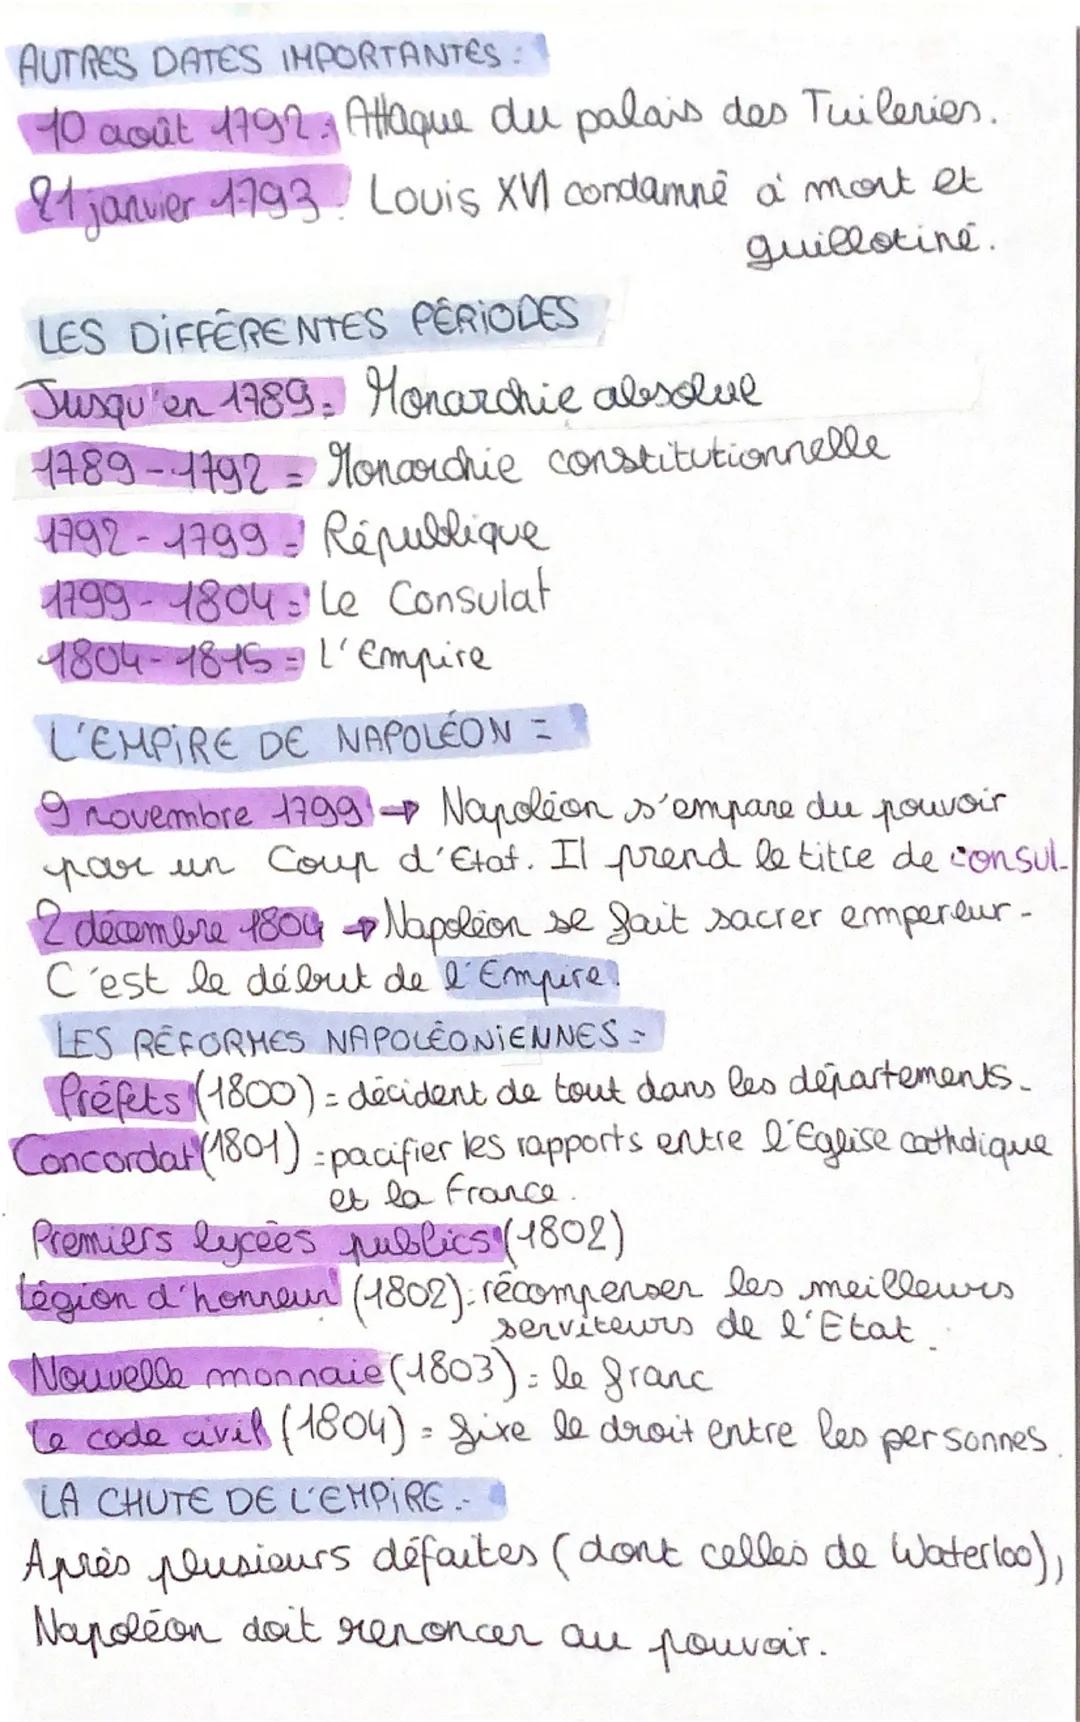 AUTRES DATES IMPORTANTES :
10 août 1792 : Attaque du palais des Tuileries.
21 janvier 1793 : Louis XVI condamné à mort et
guillotiné.
LES DIFFÉRENTES PÉRIODES
Jusqu'en 1789 = Monarchie absolue
1789 - 1792 = Monarchie constitutionnelle
1792 - 1799 = République
1799 - 1804 = Le Consulat
1804 - 1815 = L'Empire
L'EMPIRE DE NAPOLÉON =
9 novembre 1799 → Napoléon s'empare du pouvoir
par un Coup d'Etat. Il prend le titre de consul.
2 décembre 1804 → Napoléon se fait sacrer empereur -
C'est le début de l'Empire.
LES RÉFORMES NAPOLÉONIENNES =
Préfets (1800) = décident de tout dans les départements.
Concordat (1801) = pacifier les rapports entre l'Eglise catholique
et la France.
Premiers lycées publics (1802)
Légion d'honneur (1802) : récompenser les meilleurs
serviteurs de l'Etat.
Nouvelle monnaie (1803) = le franc
Le code civil (1804) = fixe le droit entre les personnes.
LA CHUTE DE L'EMPIRE :
Après plusieurs défaites (dont celles de Waterloo),
Napoléon doit renoncer au pouvoir.